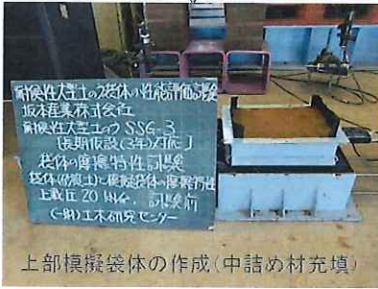 耐候性大型土のう袋体の性能評価試験
坂本産業株式会社
耐候性大型土のう SSG-3
[長期仮設(3年)対応]
袋体の摩擦特性試験
袋体(砂質土)と模擬袋体の摩擦特性
上載圧 20 kN/㎡, 試験前
(一財)土木研究センター
上部模擬袋体の作成(中詰め材充填)